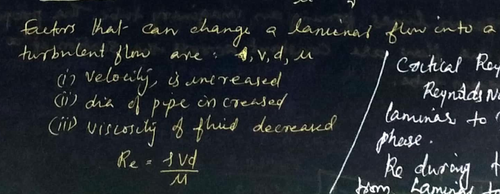 Factors that can change a laminar flow into a
turbulent flow are : ρ, v, d, μ
(i) velocity is increased
(ii) dia of pipe increased
(iii) viscosity of fluid decreased
Re = ρVd
μ
Critical Rey
Reynolds No
laminar to
phase.
Re during
from Laminar